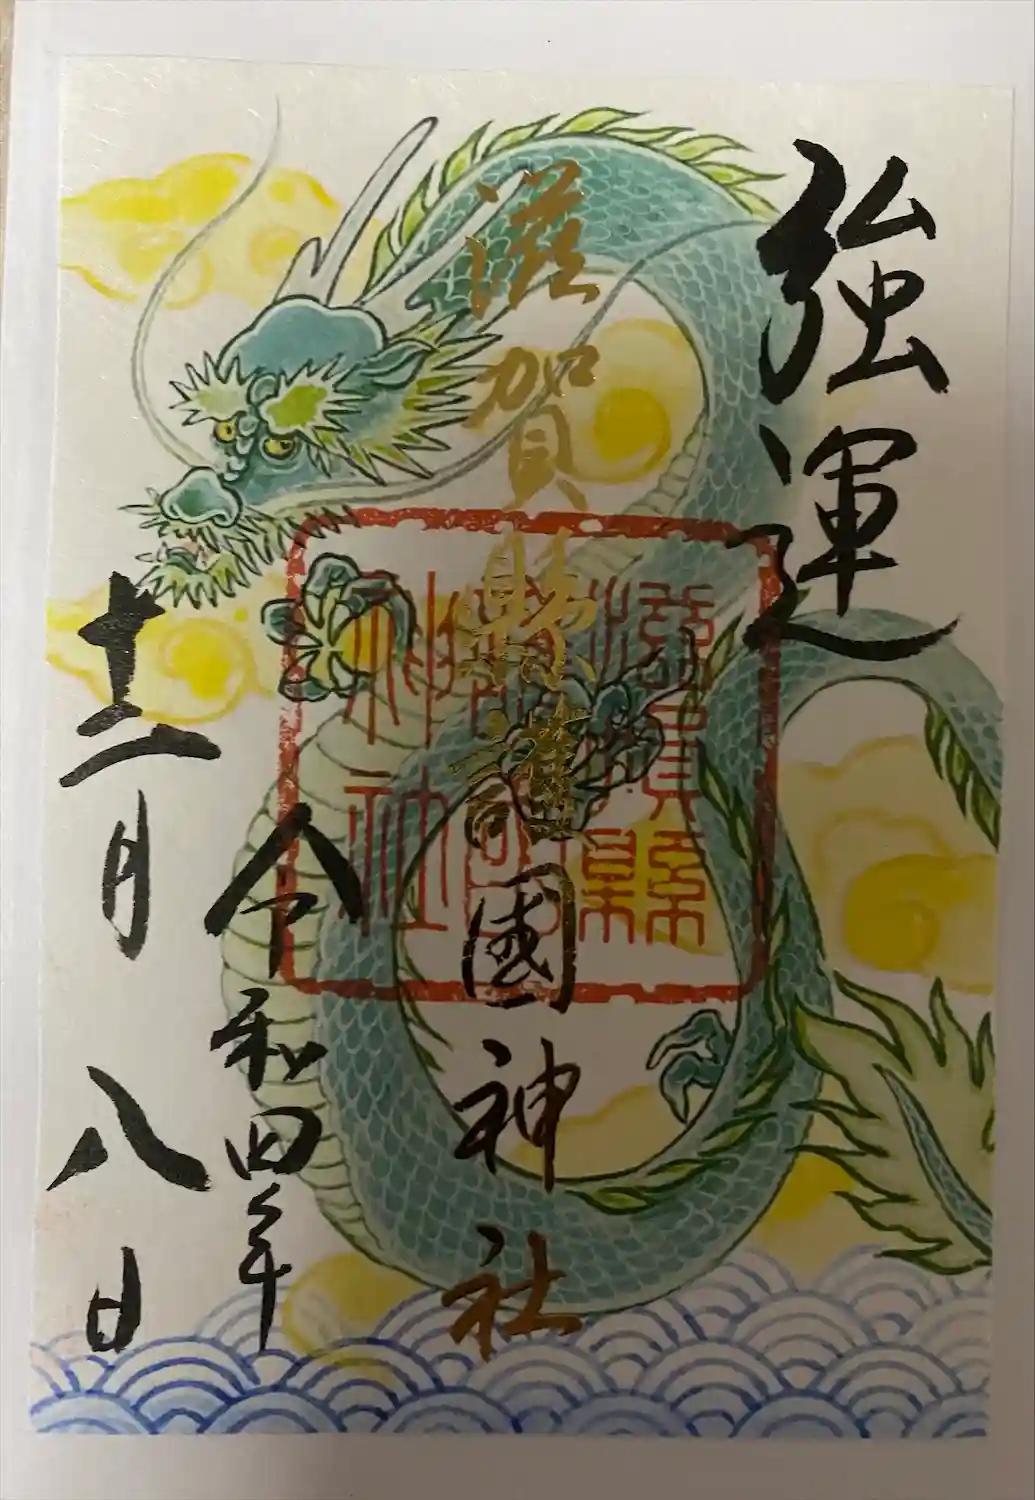 強運
滋賀縣護國神社
滋賀縣
護國
神社
令和四年
十二月八日